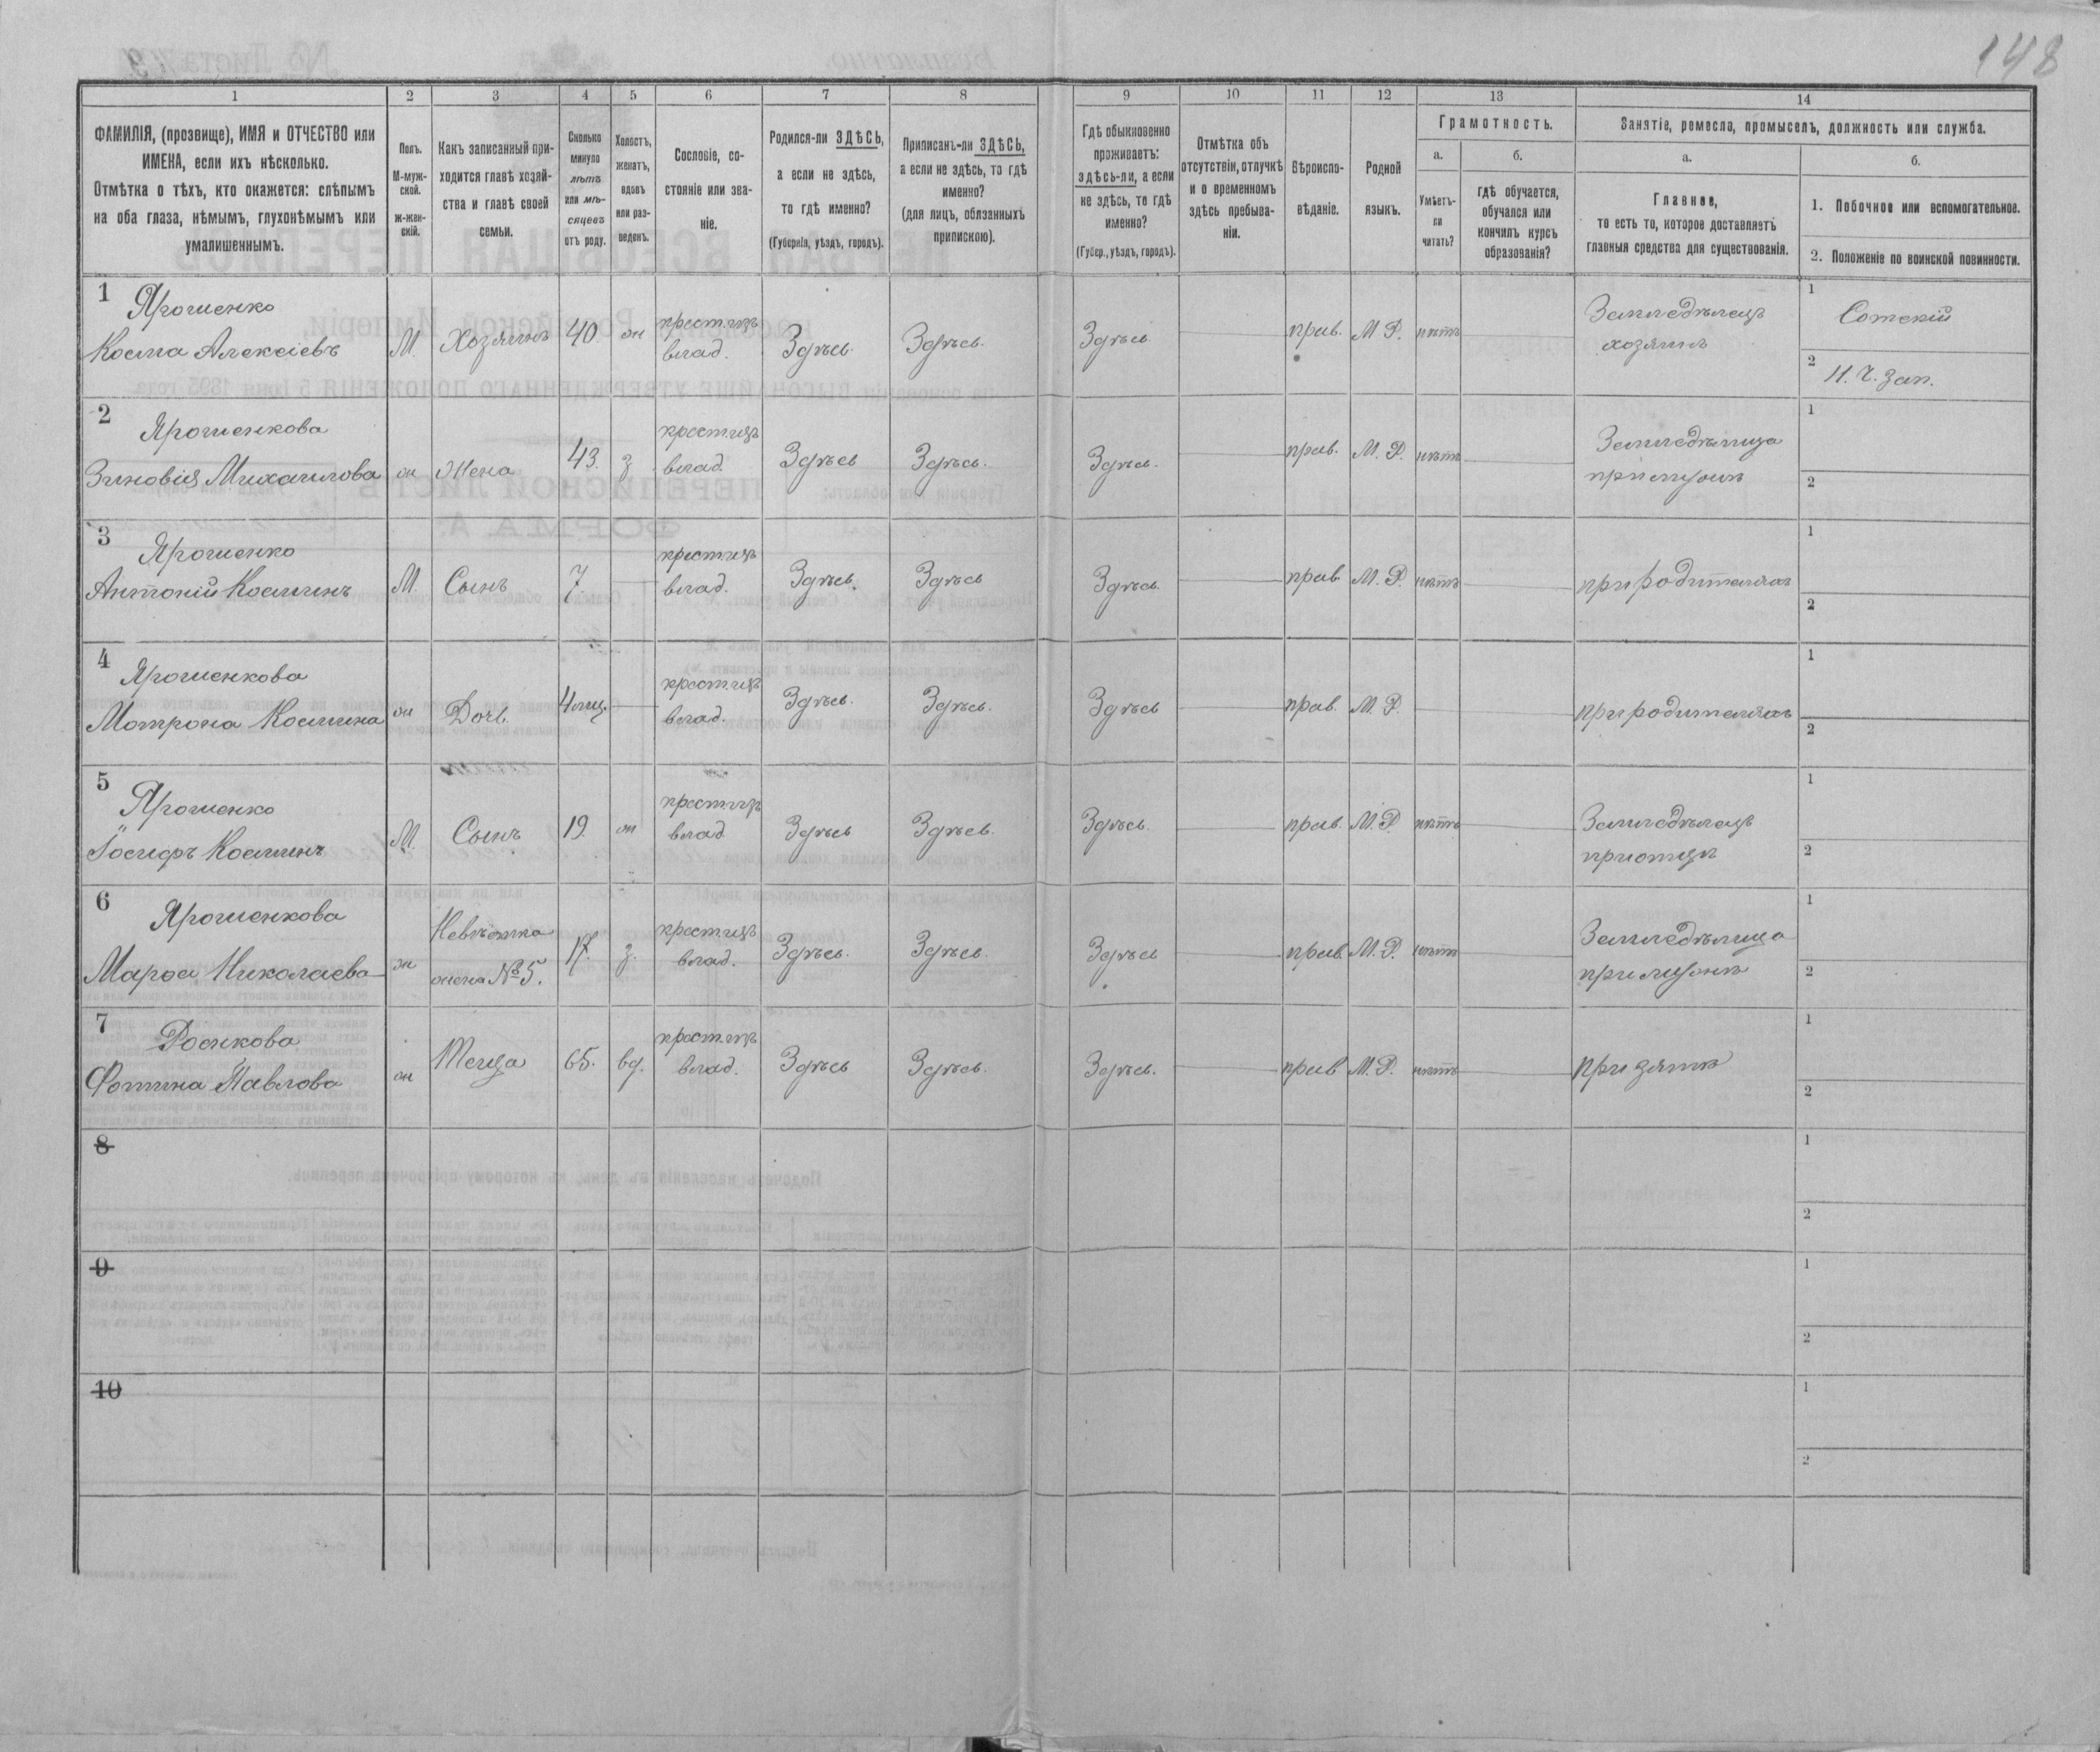 148
1 2 3 4 5 6 7 8 9 10 11 12 13 14
ФАМИЛІЯ, (прозвище), ИМЯ и ОТЧЕСТВО или
ИМЕНА, если ихъ нѣсколько.
Отмѣтка о тѣхъ, кто окажется: слѣпымъ
на оба глаза, нѣмымъ, глухонѣмымъ или
умалишеннымъ.
Полъ.
М-муж-
ской.
ж-жен-
скій.
Какъ записанный при-
ходится главѣ хозяй-
ства и главѣ своей
семьи.
Сколько
минуло
лѣтъ
или мѣ-
сяцевъ
отъ роду.
Холостъ,
женатъ,
вдовъ
или раз-
веденъ.
Сословіе, со-
стояніе или зва-
ніе.
Родился-ли ЗДѢСЬ,
а если не здѣсь,
то гдѣ именно?
(Губернія, уѣздъ, городъ).
Приписанъ-ли ЗДѢСЬ,
а если не здѣсь, то гдѣ
именно?
(для лицъ, обязанныхъ
припискою).
Гдѣ обыкновенно
проживаетъ:
здѣсь-ли, а если
не здѣсь, то гдѣ
именно?
(Губер., уѣздъ, городъ).
Отмѣтка объ
отсутствіи, отлучкѣ
и о временномъ
здѣсь пребыва-
ніи.
Вѣроиспо-
вѣданіе.
Родной
языкъ.
Грамотность.
а.
Умѣетъ-
ли
читать?
б.
гдѣ обучается,
обучался или
кончилъ курсъ
образованія?
Занятіе, ремесло, промыселъ, должность или служба.
а.
Главное,
то есть то, которое доставляетъ
главныя средства для существованія.
б.
1. Побочное или вспомогательное.
2. Положеніе по воинской повинности.
1 Ярошенко
Косма Алексіевъ
М. Хозяинъ 40. ж
крест. изъ
влад.
Здѣсь. Здѣсь. Здѣсь прав. М. Р. нѣтъ
Земледѣлецъ
хозяинъ
1 Сотскій
2 Н. Ч. Зап.
2 Ярошенкова
Зиновія Михаилова
ж Жена 43. з
крест. изъ
влад.
Здѣсь Здѣсь. Здѣсь. прав. М. Р. нѣтъ
Земледѣлица
при мужѣ
1
2
3 Ярошенко
Антоній Косминъ
М. Сынъ 7.
крест. изъ
влад.
Здѣсь. Здѣсь Здѣсь. прав. М. Р. нѣтъ при родителяхъ
1
2
4 Ярошенкова
Мотрона Космина
ж Дочь. 4 мц.
крест. изъ
влад.
Здѣсь. Здѣсь. Здѣсь прав. М. Р. при родителяхъ
1
2
5 Ярошенко
Іосифъ Косминъ
М. Сынъ 19. ж
крест. изъ
влад.
Здѣсь Здѣсь. Здѣсь. прав. М. Р. нѣтъ
Земледѣлецъ
при отцѣ
1
2
6 Ярошенкова
Марѳа Николаева
ж
Невѣстка
жена №5.
17. з.
крест. изъ
влад.
Здѣсь. Здѣсь. Здѣсь прав. М. Р. нѣтъ
Земледѣлица
при мужѣ
1
2
7
Фотина Павлова
ж Теща 65. вд.
крест. изъ
влад.
Здѣсь Здѣсь. Здѣсь. прав М. Р. нѣтъ при зятѣ
1
2
8
1
2
9
1
2
10
1
2